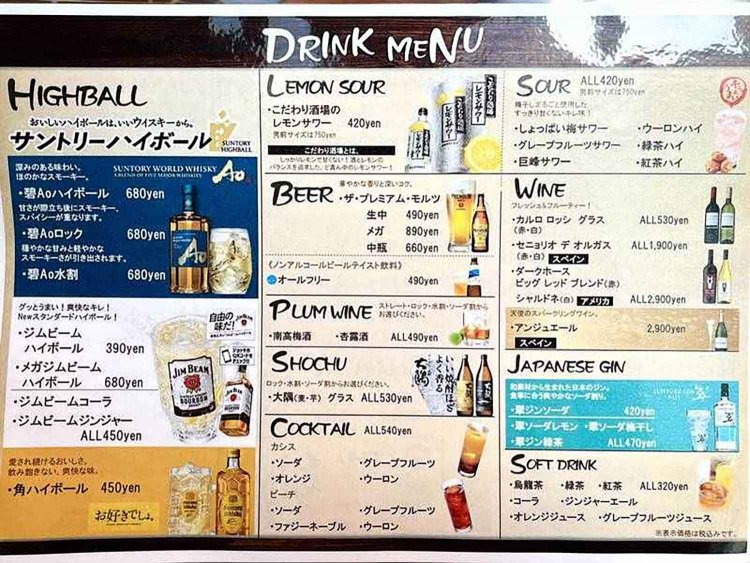 DRINK MENU
HIGHBALL
おいしいハイボールは、いいウイスキーから。
サントリーハイボール
SUNTORY
HIGHBALL
深みのある味わい。
ほのかなスモーキー。
SUNTORY WORLD WHISKY
A BLEND OF FIVE MAJOR WHISKIES
Ao
・碧Aoハイボール 680yen
甘さが際立ち後にスモーキー、
スパイシーが重なります。
・碧Aoロック 680yen
穏やかな甘みと軽やかな
スモーキーさが引き出されます。
・碧Ao水割 680yen
グッとうまい!爽快なキレ!
Newスタンダードハイボール!
自由の
味だ!
・ジムビーム
ハイボール 390yen
・メガジムビーム
ハイボール 680yen
・ジムビームコーラ
・ジムビームジンジャー
ALL450yen
JIM BEAM
BOURBON
愛され続けるおいしさ。
飲み飽きない、爽快な味。
・角ハイボール 450yen
お好きでしょ。
LEMON SOUR
・こだわり酒場の
レモンサワー 420yen
男前サイズは750yen
こだわり酒場とは、
しっかりレモンで甘くない!酒とレモンの
バランスを追求した、ど真ん中のレモンサワー!
こだわり酒場の
レモンサワー
BEER 華やかな香りと深いコク。
・ザ・プレミアム・モルツ
生中 490yen
メガ 890yen
中瓶 660yen
《ノンアルコールビールテイスト飲料》
オールフリー 490yen
PLUM WINE
ストレート・ロック・水割・ソーダ割から
お選びください。
・南高梅酒 ・杏露酒 ALL490yen
SHOCHU
ロック・水割・ソーダ割からお選びください。
・大隅(麦・芋) グラス ALL530yen
いい焼酎ほど
よく香る。
大隅
COCKTAIL ALL540yen
カシス
・ソーダ ・グレープフルーツ
・オレンジ ・ウーロン
ピーチ
・ソーダ ・グレープフルーツ
・ファジーネーブル ・ウーロン
SOUR ALL420yen
男前サイズは750yen
梅干しまるごと使用した、
すっきり甘くないキレ味!
・しょっぱい梅サワー ・ウーロンハイ
・グレープフルーツサワー ・緑茶ハイ
・巨峰サワー ・紅茶ハイ
WINE
フレッシュ&フルーティー!
・カルロ ロッシ グラス ALL530yen
(赤・白)
・セニョリオ デ オルガス ALL1,900yen
(赤・白) スペイン
・ダークホース
ビッグ レッド ブレンド(赤)
シャルドネ(白) アメリカ ALL2,900yen
天使のスパークリングワイン。
・アンジュエール 2,900yen
スペイン
JAPANESE GIN
和素材から生まれた日本のジン。
食事に合う爽やかなソーダ割り。
SUNTORY GIN
翠
・翠ジンソーダ 420yen
・翠ソーダレモン ・翠ソーダ梅干し
・翠ジン緑茶 ALL470yen
SOFT DRINK
・烏龍茶 ・緑茶 ・紅茶 ALL320yen
・コーラ ・ジンジャーエール
・オレンジジュース ・グレープフルーツジュース
※表示価格は税込みです。